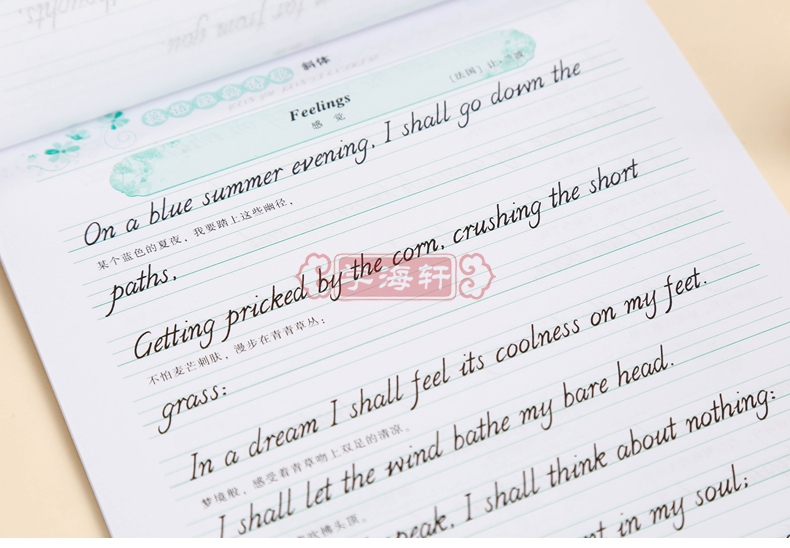 斜体
Feelings
感 觉
[法国] 让·
On a blue summer evening, I shall go down the
某个蓝色的夏夜，我要踏上这些幽径，
paths,
Getting pricked by the corn, crushing the short
不怕麦芒刺肤，漫步在青青草丛：
grass:
In a dream I shall feel its coolness on my feet.
梦境般，感受着青草吻上双足的清凉。
I shall let the wind bathe my bare head.
拂头顶。
speak, I shall think about nothing:
in my soul;
学海轩
far from you
thoughts.